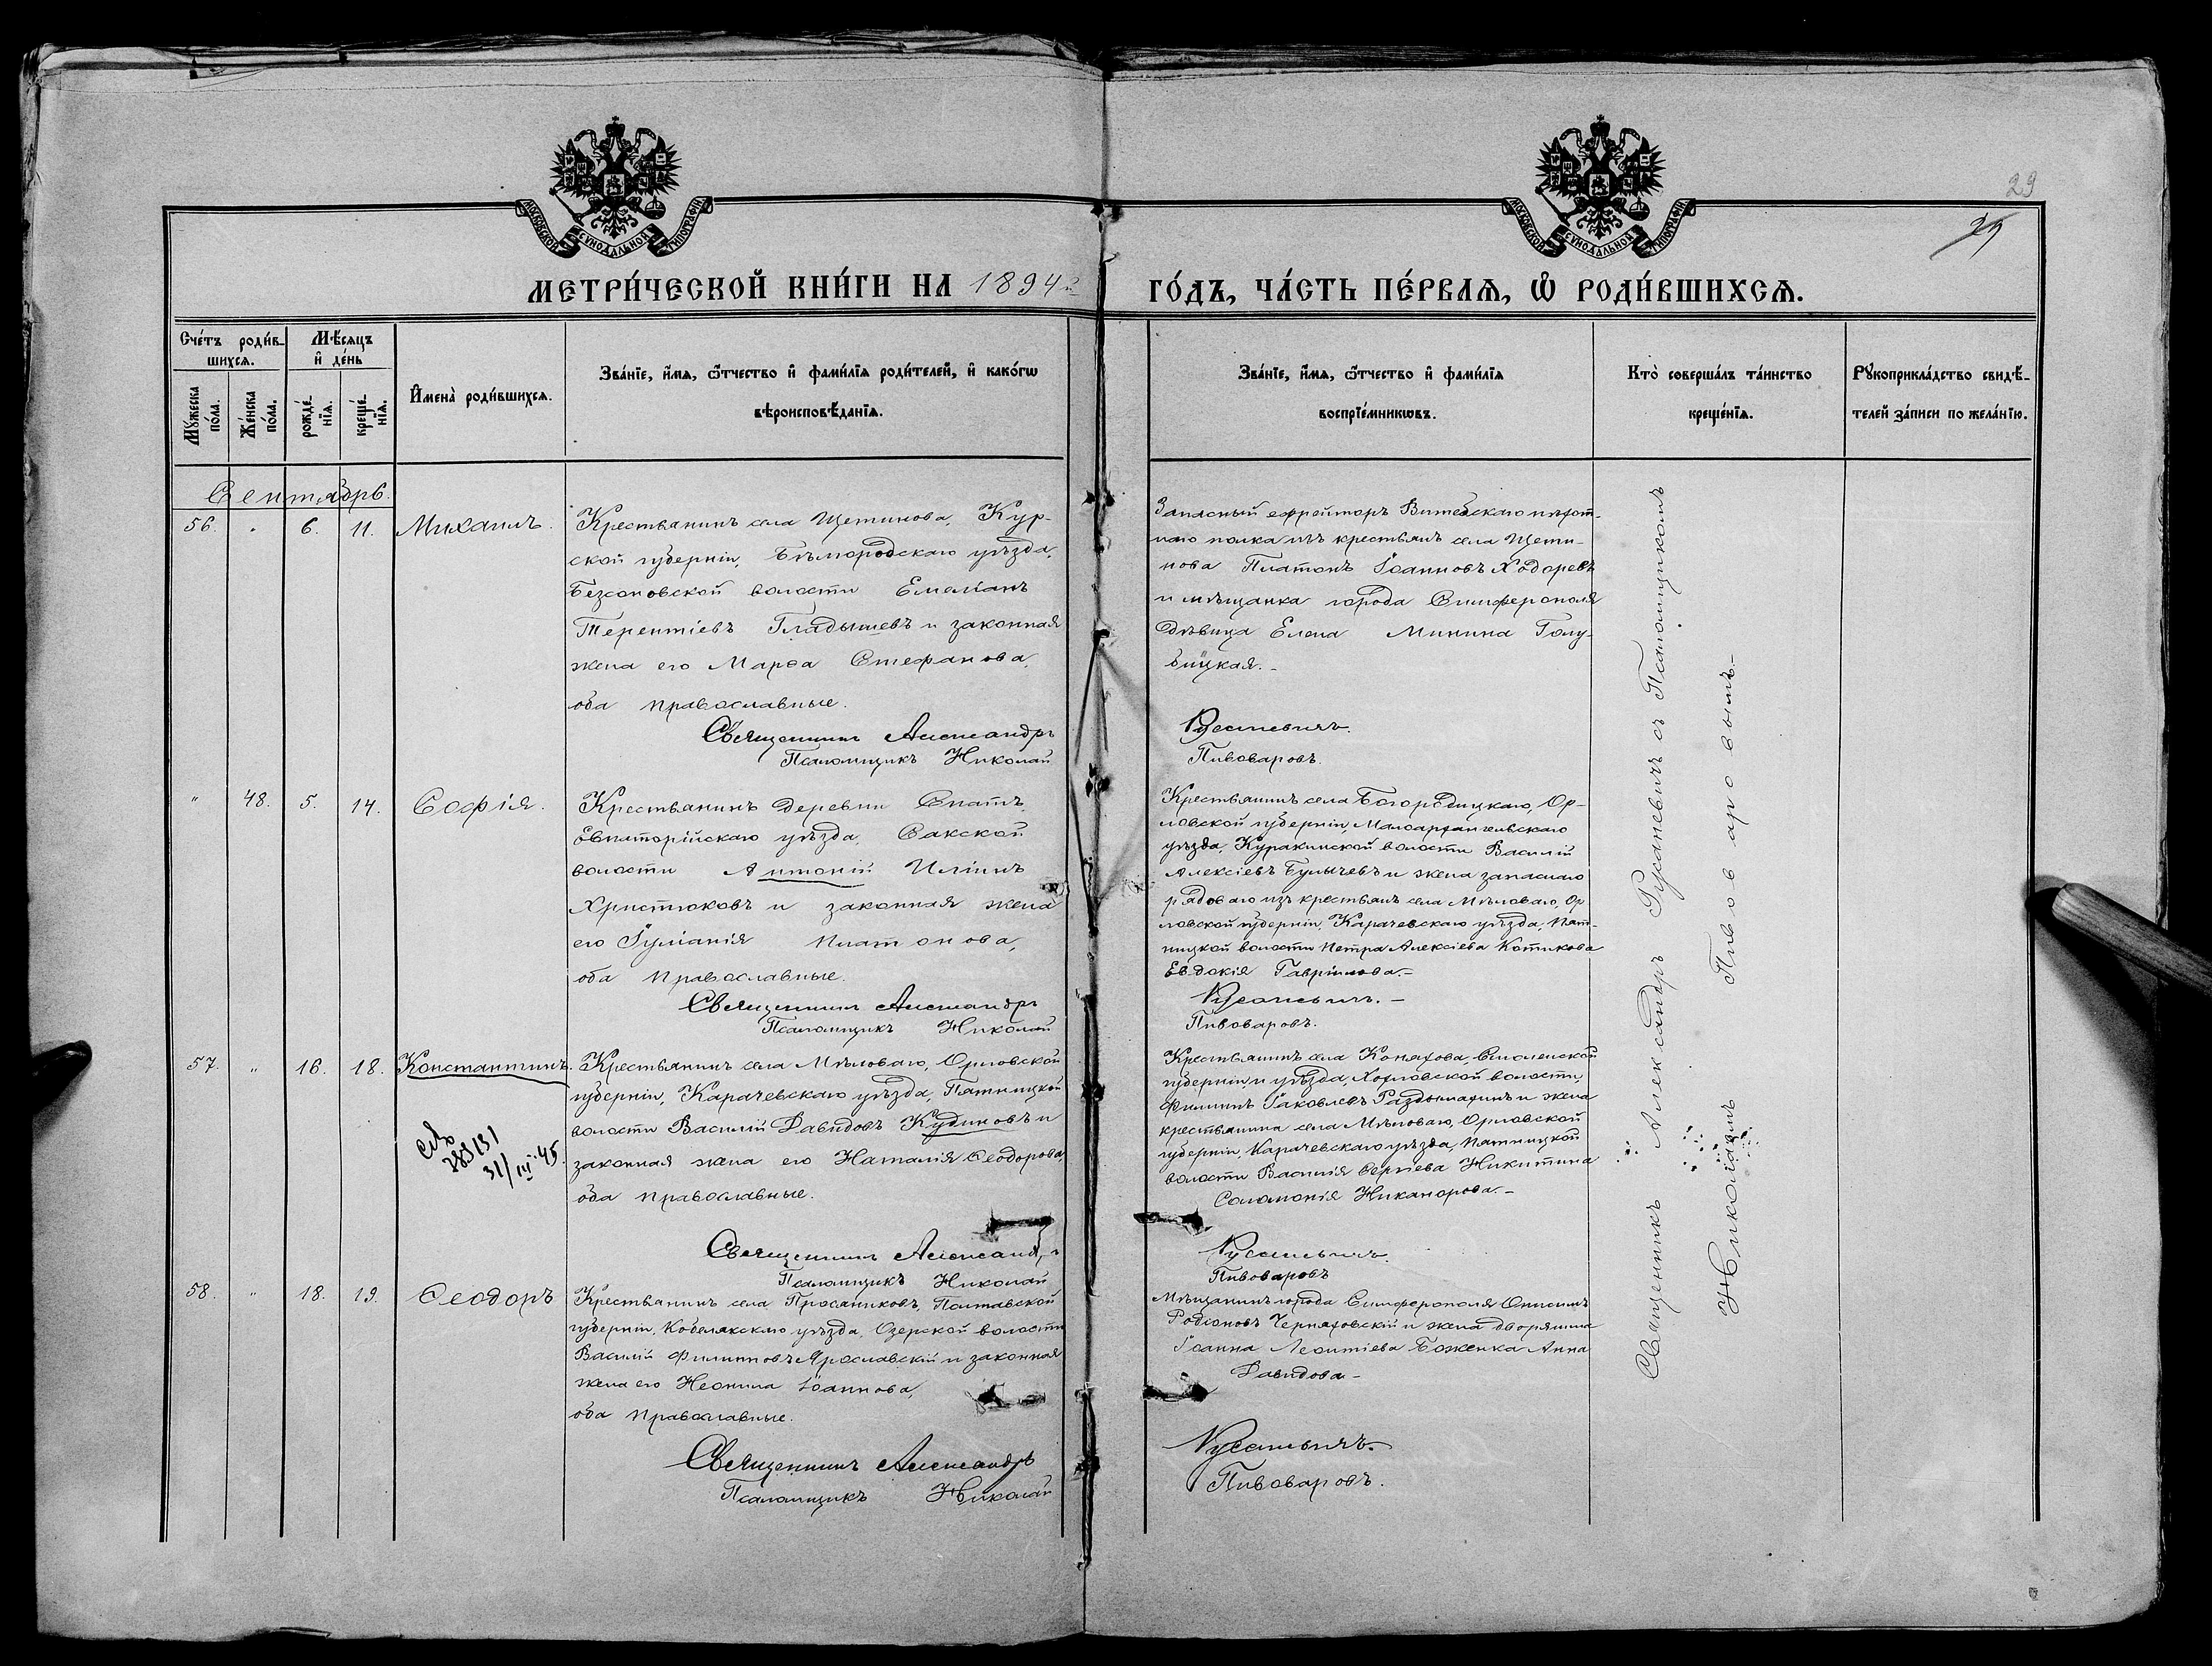 29
29
МОСКОВСКОЙ СѴНОДАЛЬНОЙ ТИПОГРАФІИ
МОСКОВСКОЙ СѴНОДАЛЬНОЙ ТИПОГРАФІИ
МЕТРИ́ЧЕСКОЙ КНИ́ГИ НА 1894й ГО́ДЪ, ЧА́СТЬ ПЕ́РВАѦ, Ѡ҆ РОДИ́ВШИХСѦ.
Сче́тъ роди́в-
шихсѧ.
Мꙋ́жеска по́ла.
Же́нска по́ла.
Мѣ́сѧцъ
и҆ де́нь
рожде́-
нїѧ.
креще́-
нїѧ.
И҆мена̀ роди́вшихсѧ.
Зва́нїе, и҆́мѧ, ѻ҆́тчество и҆ фами́лїѧ роди́телей, и҆ како́гѡ
вѣроисповѣ́данїѧ.
Зва́нїе, и҆́мѧ, ѻ҆́тчество и҆ фами́лїѧ
воспрїе́мникѡвъ.
Кто̀ соверша́лъ та́инство
креще́нїѧ.
Рꙋкоприкла́дство свидѣ́-
телей за́писи по жела́нїю.
Сентябрь.
56. " 6. 11. Михаилъ.
Крестьянинъ села Щетинова, Кур-
ской губерніи, Бѣлгородскаго уѣзда,
Безсоновской волости Емеліанъ
Терентіевъ Гладышевъ и законная
жена его Марѳа Стефанова,
оба православные.
Священникъ Александръ
Псаломщикъ Николай
Запасный ефрейторъ Витебскаго пѣхот-
наго полка изъ крестьянъ села Щети-
нова Платонъ Іоанновъ Ходоревъ
и мѣщанка города Симферополя
дѣвица Елена Минина Голу-
бицкая.-
Русаневичъ.
Пивоваровъ.
" 48. 5. 14. Софія.
Крестьянинъ деревни Спатъ,
Евпаторійскаго уѣзда, Сакской
волости Антоній Иліинъ
Христюковъ и законная жена
его Іуліанія Платонова,
оба православные.
Священникъ Александръ
Псаломщикъ Николай
Крестьянинъ села Богородицкаго, Ор-
ловской губерніи, Малоархангельскаго
уѣзда, Куракинской волости Василій
Алексіевъ Булычевъ и жена запаснаго
рядоваго изъ крестьянъ села Мѣловаго, Ор
ловской губерніи, Карачевскаго уѣзда, Пят-
ницкой волости Петра Алексіева Котикова
Евдокія Гавріилова.-
Русаневичъ.-
Пивоваровъ.
57. " 16. 18. Константинъ.
283131
31/III 45.
Крестьянинъ села Мѣловаго, Орловской
губерніи, Карачевскаго уѣзда, Пятницкой
волости Василій Давидовъ Кудиновъ и
законная жена его Наталія Ѳеодорова,
оба православные.
Священникъ Александръ
Псаломщикъ Николай
Крестьянинъ села Коняхова, Смоленской
губерніи и уѣзда, Хохловской волости,
Филиппъ Іаковлевъ Раздымахинъ и жена
крестьянина села Мѣловаго, Орловской
губерніи, Карачевскаго уѣзда, Пятницкой
волости Василія Сергіева Никитина
Соломонія Никанорова.-
Русаневичъ.
Пивоваровъ
58. " 18. 19. Ѳеодоръ
Крестьянинъ села Просяниковъ, Полтавской
губерніи, Кобелякскаго уѣзда, Озерской волости
Василій Филипповъ Ярославскій и законная
жена его Неонила Іоаннова,
оба православные.
Священникъ Александръ
Псаломщикъ Николай
Мѣщанинъ города Симферополя Онисимъ
Родіоновъ Черняховскій и жена дворянина
Іоанна Леонтіева Боженка Анна
Давидова-
Русаневичъ.
Пивоваровъ.
Священникъ Александръ Русаневичъ съ Псаломщикомъ
Николаемъ Пивоваровымъ.-